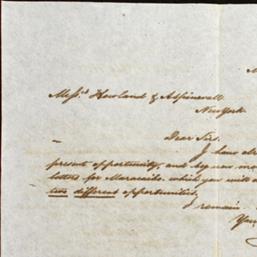 Mess.rs Howland & Aspinwall
New York
Dear Sirs,
I have al
present opportunity, and by new m
letters for Maracaibo which you will
two different opportunities,
I remain
You